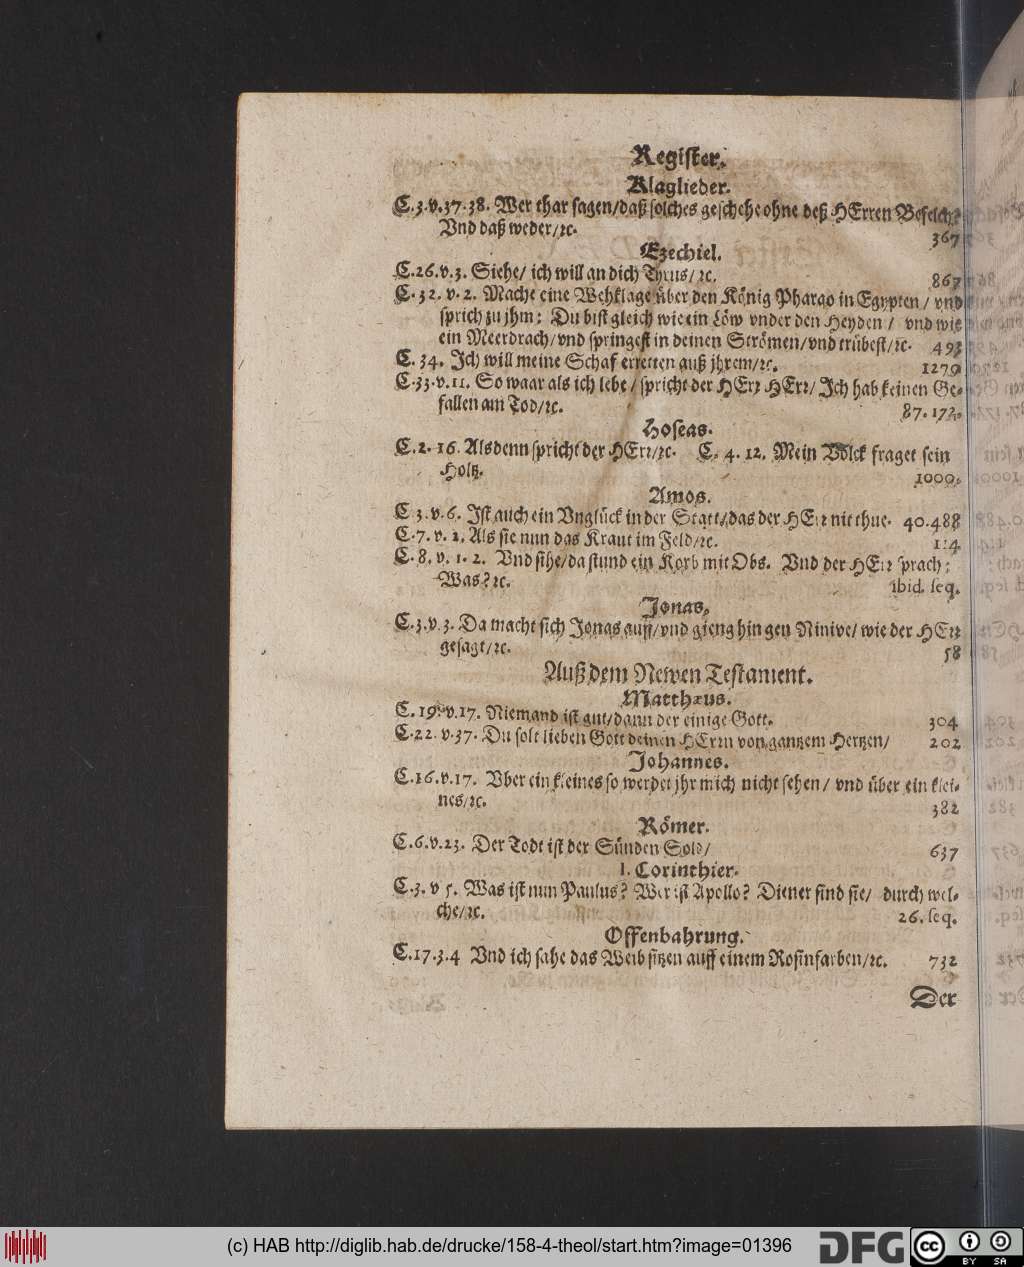 Register.
Klaglieder.
C.3.v.37.38. Wer thar sagen/daß solches geschehe ohne deß HErren Befelch?
Vnd daß weder/ꝛc. 367
Ezechiel.
C.26.v.3. Siehe/ ich will an dich Tyrus/ꝛc. 867
C.32.v.2. Mache eine Wehklage über den König Pharao in Egypten/ vnd
sprich zu jhm: Du bist gleich wie ein Löw vnder den Heyden/ vnd wie
ein Meerdrach/vnd springest in deinen Strömen/vnd trübest/ꝛc. 493
C. 34. Ich will meine Schaf erretten auß jhrem/ꝛc. 1279
C.33.v.11. So waar als ich lebe/ spricht der HErꝛ HErꝛ/ Ich hab keinen Ge-
fallen am Tod/ꝛc. 87. 172.
Hoseas.
C.2.16. Alsdenn spricht der HErꝛ/ꝛc. C. 4. 12. Mein Volck fraget sein
Holtz. 1000.
Amos.
C 3.v.6. Ist auch ein Vnglück in der Statt/das der HErꝛ nit thue. 40.488
C.7.v.2. Als sie nun das Kraut im Feld/ꝛc.
C.8.v.1.2. Vnd sihe/da stund ein Korb mit Obs. Vnd der HErꝛ sprach:
Was?ꝛc. ibid. seq.
Jonas.
C.3.v.3. Da macht sich Jonas auff/vnd gieng hin gen Ninive/ wie der HErꝛ
gesagt/ꝛc. 58
Auß dem Newen Testament.
Matthæus.
C.19.v.17. Niemand ist gut/dann der einige Gott. 304
C.22.v.37. Du solt lieben Gott deinen HErrn von gantzem Hertzen/ 202
Johannes.
C.16.v.17. Vber ein kleines so werdet jhr mich nicht sehen/ vnd über ein klei-
nes/ꝛc. 382
Römer.
C.6.v.23. Der Todt ist der Sünden Sold/ 637
1. Corinthier.
C.3.v 5. Was ist nun Paulus? Wer ist Apollo? Diener sind sie/ durch wel-
che/ꝛc. 26. seq.
Offenbahrung.
C.17.3.4 Vnd ich sahe das Weib sitzen auff einem Rosinfarben/ꝛc. 732
Der
(c) HAB http://diglib.hab.de/drucke/158-4-theol/start.htm?image=01396
DFG
cc BY SA